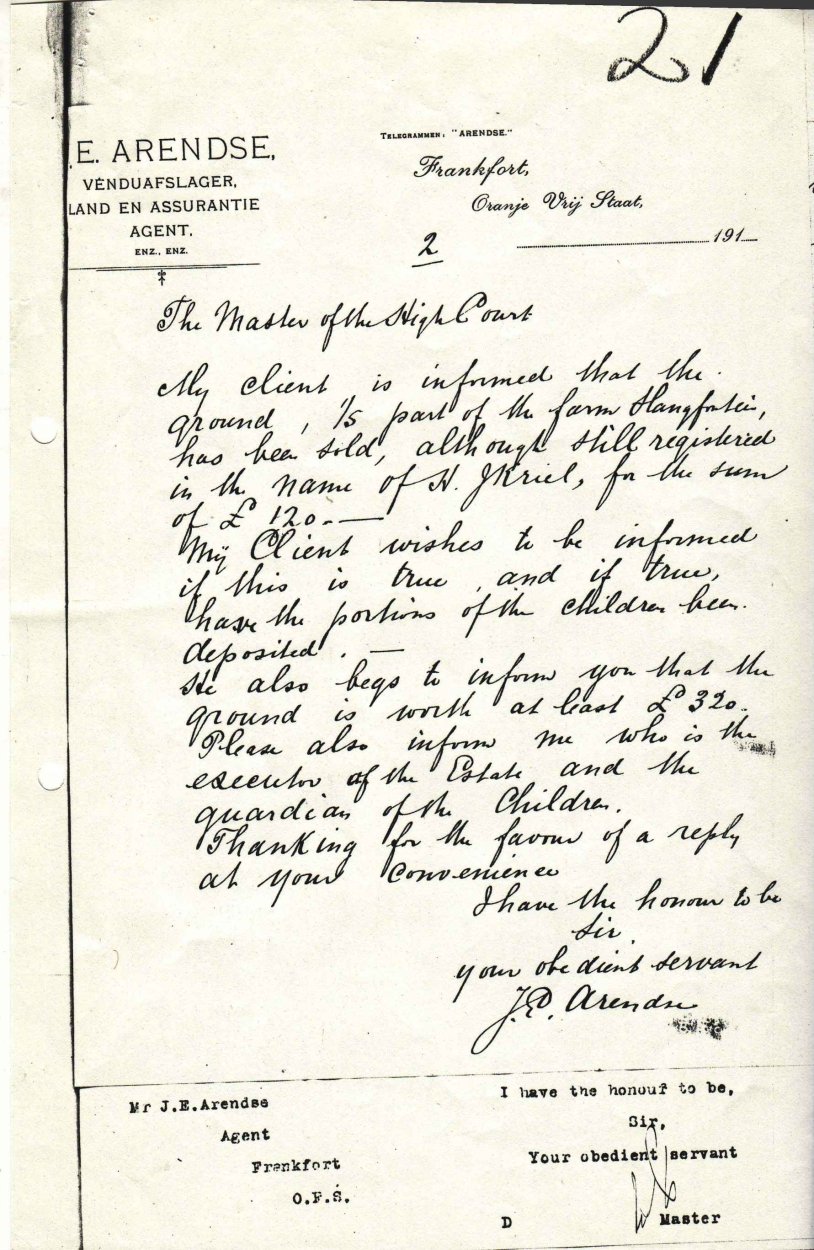 21
.E. ARENDSE,
VENDUAFSLAGER,
LAND EN ASSURANTIE
AGENT.
ENZ., ENZ.
TELEGRAMMEN: "ARENDSE."
Frankfort,
Oranje Vrij Staat,
191
2
The Master of the High Court
My client is informed that the
ground, 1/5 part of the farm Hangfontein,
has been sold, although still registered
in the name of H. J Kriel, for the sum
of £ 120.—
My Client wishes to be informed
if this is true, and if true,
have the portions of the children been
deposited. —
He also begs to inform you that the
ground is worth at least £ 320.
Please also inform me who is the
executor of the Estate and the
guardian of the Children.
Thanking for the favour of a reply
at your convenience
I have the honour to be
Sir,
your obedient servant
J.E. Arendse
Mr J.E.Arendse
Agent
Frankfort
O.F.S.
I have the honour to be,
Sir,
Your obedient servant
D Master